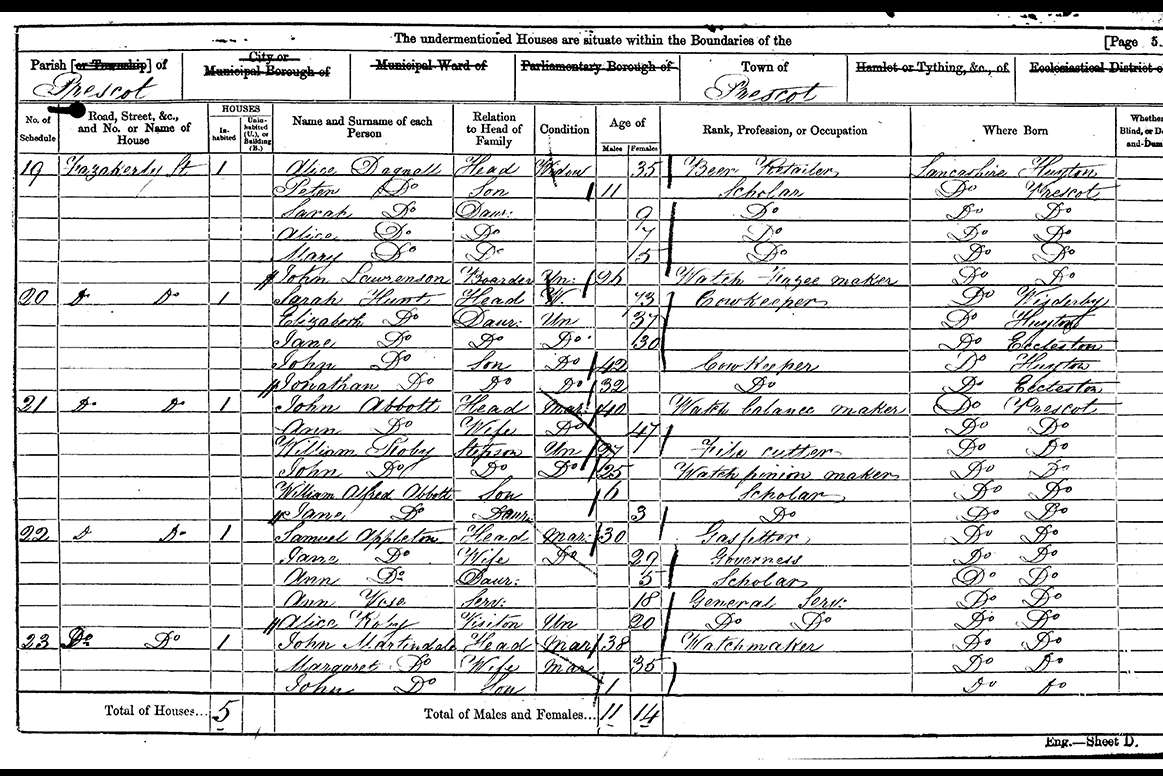 The undermentioned Houses are situate within the Boundaries of the [Page 5.
Parish [or Township] of City or Municipal Borough of Municipal Ward of Parliamentary Borough of Town of Hamlet or Tything, &c., of Ecclesiastical District o
Prescot Prescot
No. of Schedule Road, Street, &c., and No. or Name of House HOUSES In-habited Unin-habited (U.), or Building (B.) Name and Surname of each Person Relation to Head of Family Condition Age of Males Females Rank, Profession, or Occupation Where Born Whether Blind, or D and-Dum
19 Fazakerley St 1 Alice Dagnall Head Widow 35 Beer Retailer Lancashire Huyton
Peter Do Son 11 Scholar Do Prescot
Sarah Do Daur: 9 Do Do Do
Alice Do Do 7 Do Do Do
Mary Do Do 5 Do Do Do
John Lawrenson Boarder Un: 26 Watch Fuzee maker Do Do
20 Do Do 1 Sarah Hunt Head W. 73 Cowkeeper Do
Elizabeth Do Daur: Un 37 Do Huyton
Jane Do Do Do 30 Do Eccleston
John Do Son Do 42 Cowkeeper Do Huyton
Jonathan Do Do Do 32 Do Do Eccleston
21 Do Do 1 John Abbott Head Mar: 40 Watch balance maker Do Prescot
Ann Do Wife Do 47 Do Do
William Roby Stepson Un 27 File cutter Do Do
John Do Do Do 25 Watch pinion maker Do Do
William Alfred Abbott Son 6 Scholar Do Do
Jane Do Daur: 3 Do Do Do
22 Do Do 1 Samuel Appleton Head Mar: 30 Gasfitter Do Do
Jane Do Wife Do 29 Governess Do Do
Ann Do Daur: 5 Scholar Do Do
Ann Serv: 18 General Serv: Do Do
Alice Roby Visitor Un 20 Do Do Do Do
23 Do Do 1 John Martindale Head Mar 38 Watchmaker Do Do
Margaret Do Wife Mar 35 Do Do
John Do Son 1 Do Do
Total of Houses... 5 Total of Males and Females... 11 14
Eng.—Sheet D.